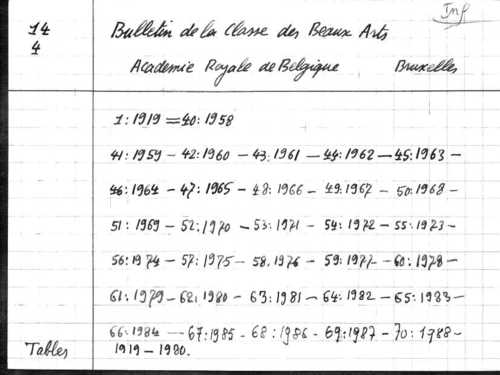 Inf
14 Bulletin de la Classe des Beaux Arts
4
Academie Royale de Belgique Bruxelles
1:1919 = 40:1958
41:1959 – 42:1960 – 43:1961 – 44:1962 – 45:1963 –
46:1964 – 47:1965 – 48:1966 – 49:1967 – 50:1968 –
51:1969 – 52:1970 – 53:1971 – 54:1972 – 55:1973 –
56:1974 – 57:1975 – 58:1976 – 59:1977 – 60:1978 –
61:1979 – 62:1980 – 63:1981 – 64:1982 – 65:1983 –
66:1984 – 67:1985 – 68:1986 – 69:1987 – 70:1988 –
Tables 1919 – 1980.